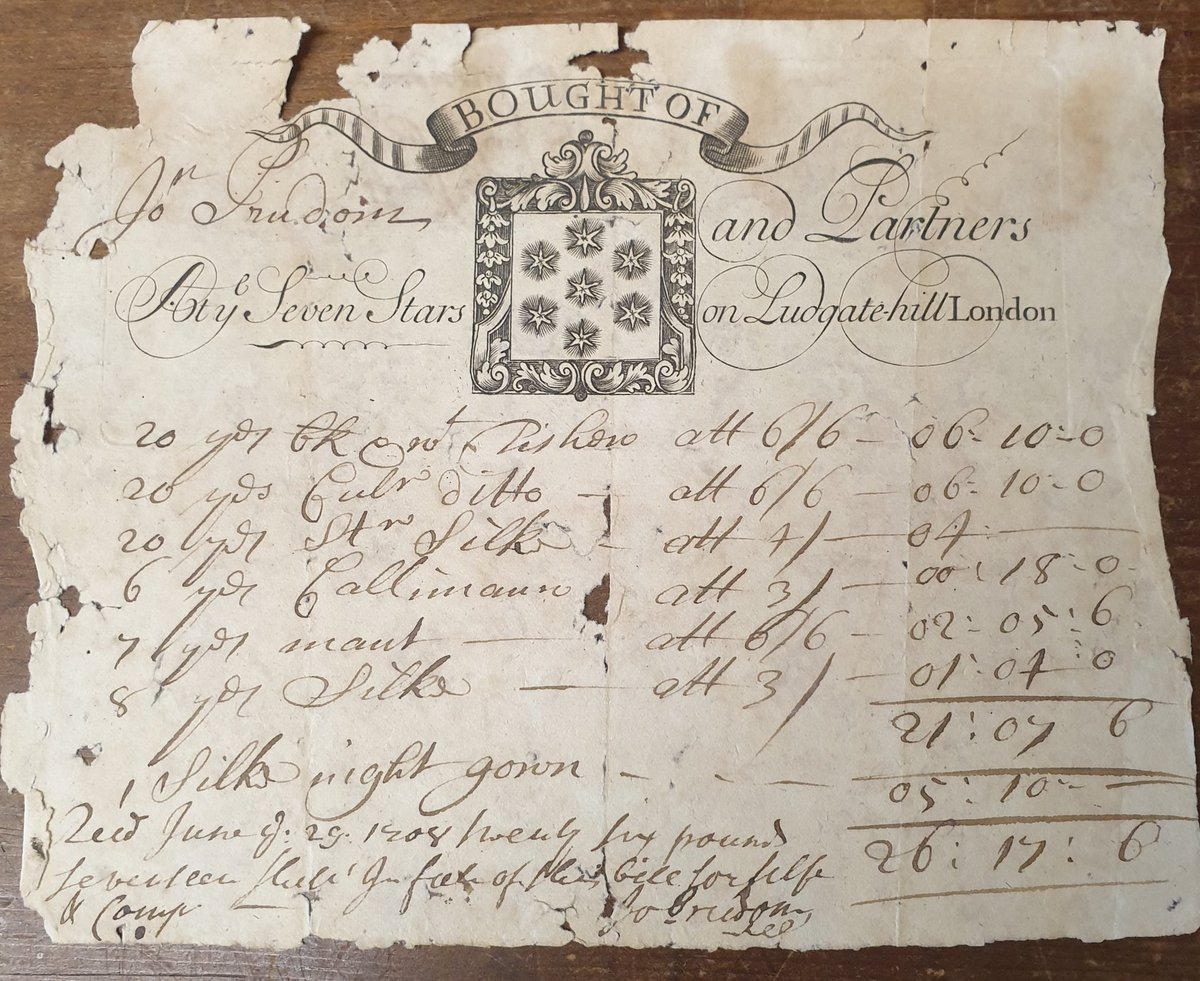 BOUGHT OF
Jon Prudom and Partners
At ye Seven Stars on Ludgate-hill London
20 yds bk & wt Tishew att 6/6 — 06 : 10 : 0
20 yds Culr ditto — att 6/6 — 06 : 10 : 0
20 yds Str Silke - att 4/ — 04 —
6 yds Callimann att 3/ — 00 : 18 : 0
7 yds mant — att 6/6 — 02 : 05 : 6
8 yds Silke — att 3/ — 01 : 04 0
21 : 07 6
1 Silke night gown - - — 05 : 10 - —
26 : 17 : 6
Recd June ye 29 1708 twenty six pounds
seventeen shill in full of this bill for selfe
& Comp Jo Prudom